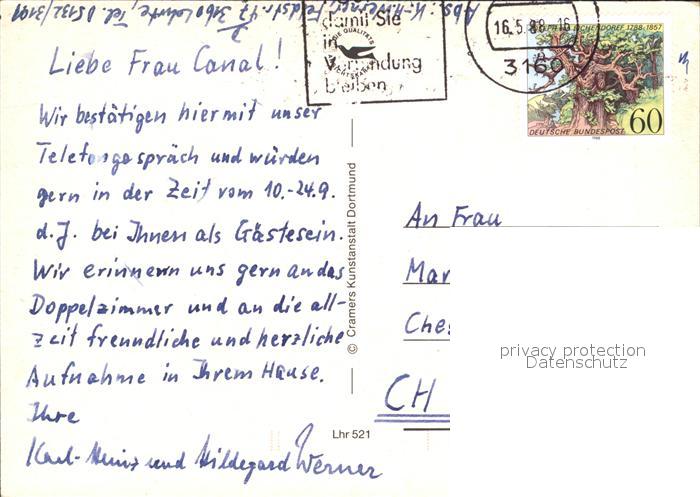 Abs.: K.-H. Werner, Feldstr. 43, 3160 Lehrte, Tel. 05132/3101
damit Sie
in
Verbindung
bleiben
16.5.88-16
3160
EICHENDORFF 1788-1857
DEUTSCHE BUNDESPOST 60
Liebe Frau Canal!
Wir bestätigen hiermit unser
Telefongespräch und würden
gern in der Zeit vom 10.-24.9.
d.J. bei Ihnen als Gäste sein.
Wir erinnern uns gern an das
Doppelzimmer und an die all-
zeit freundliche und herzliche
Aufnahme in Ihrem Hause.
Ihre
Karl-Heinz und Hildegard Werner
© Cramers Kunstanstalt Dortmund
Lhr 521
An Frau
Mar
Ches
CH
privacy protection
Datenschutz